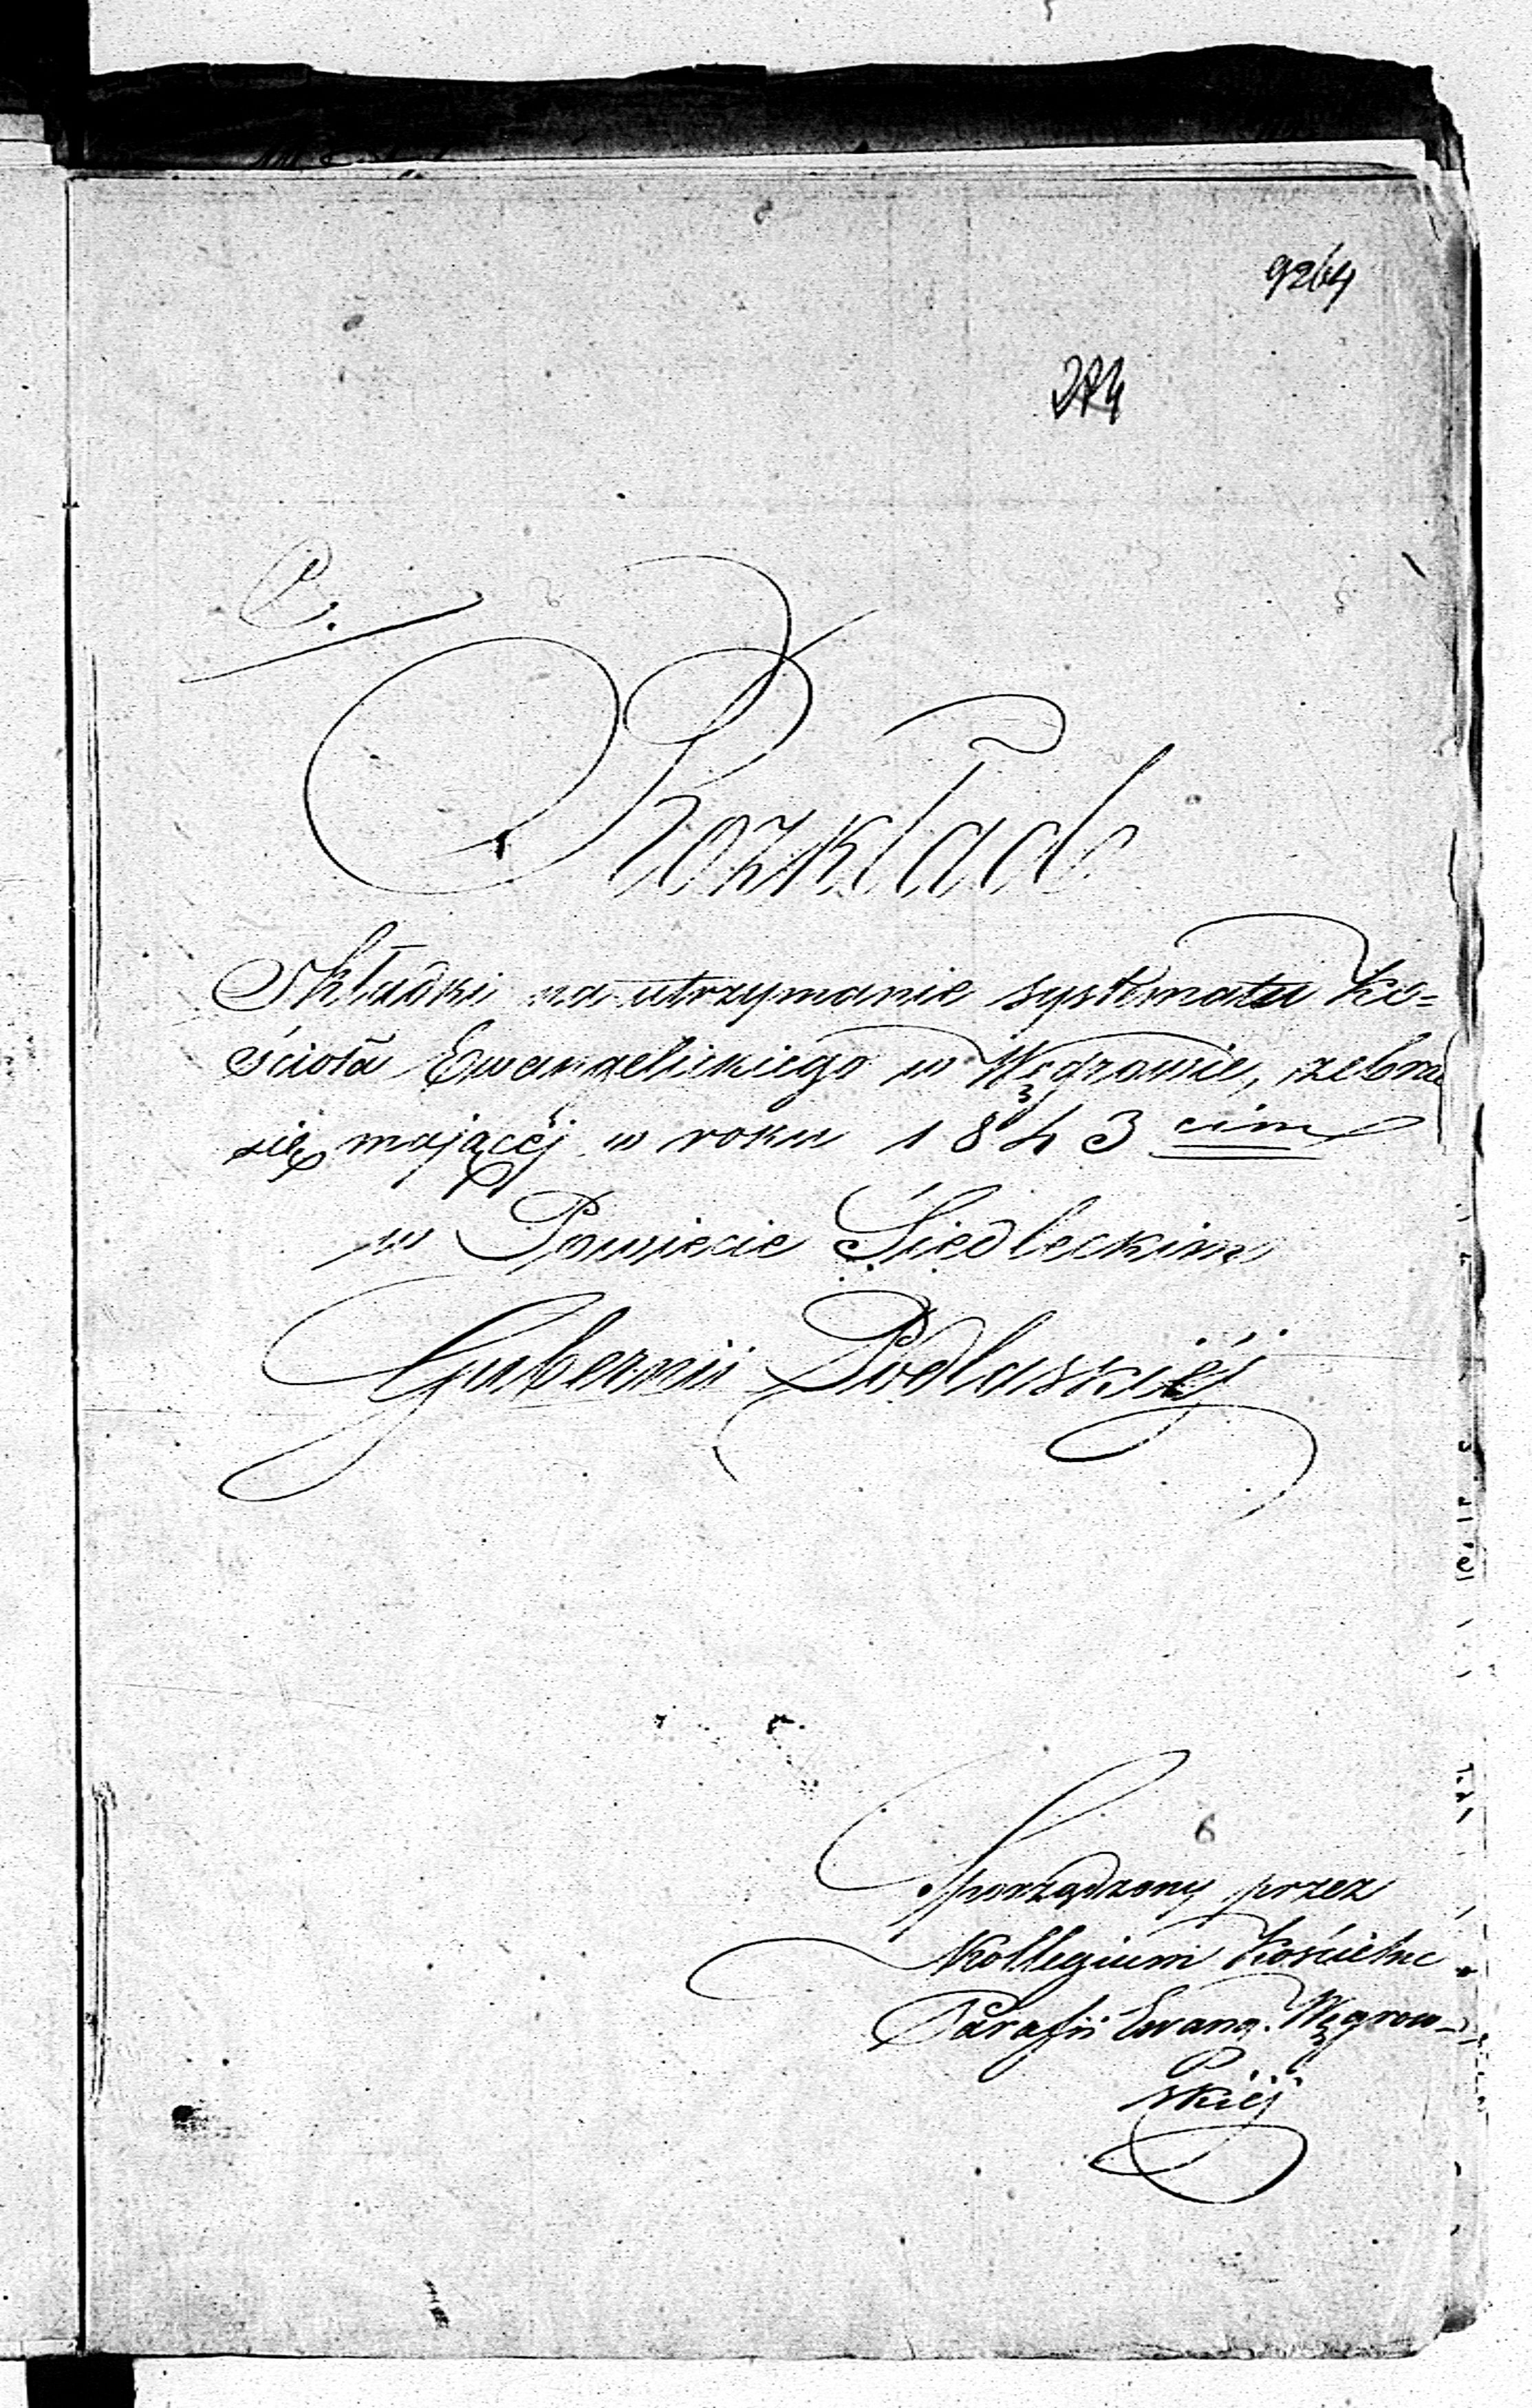 9264
C.
Rozkład
Składki na utrzymanie systematu Ko=
ścioła Ewangelickiego w Węgrowie, zebrać
się mającéj w roku 1843 cim
w Powiecie Siedleckim
Gubernii Podlaskiéj
6
Sporządzony przez
Kollegium Kościelne
Parafii Ewang. Węgrow-
skiéj